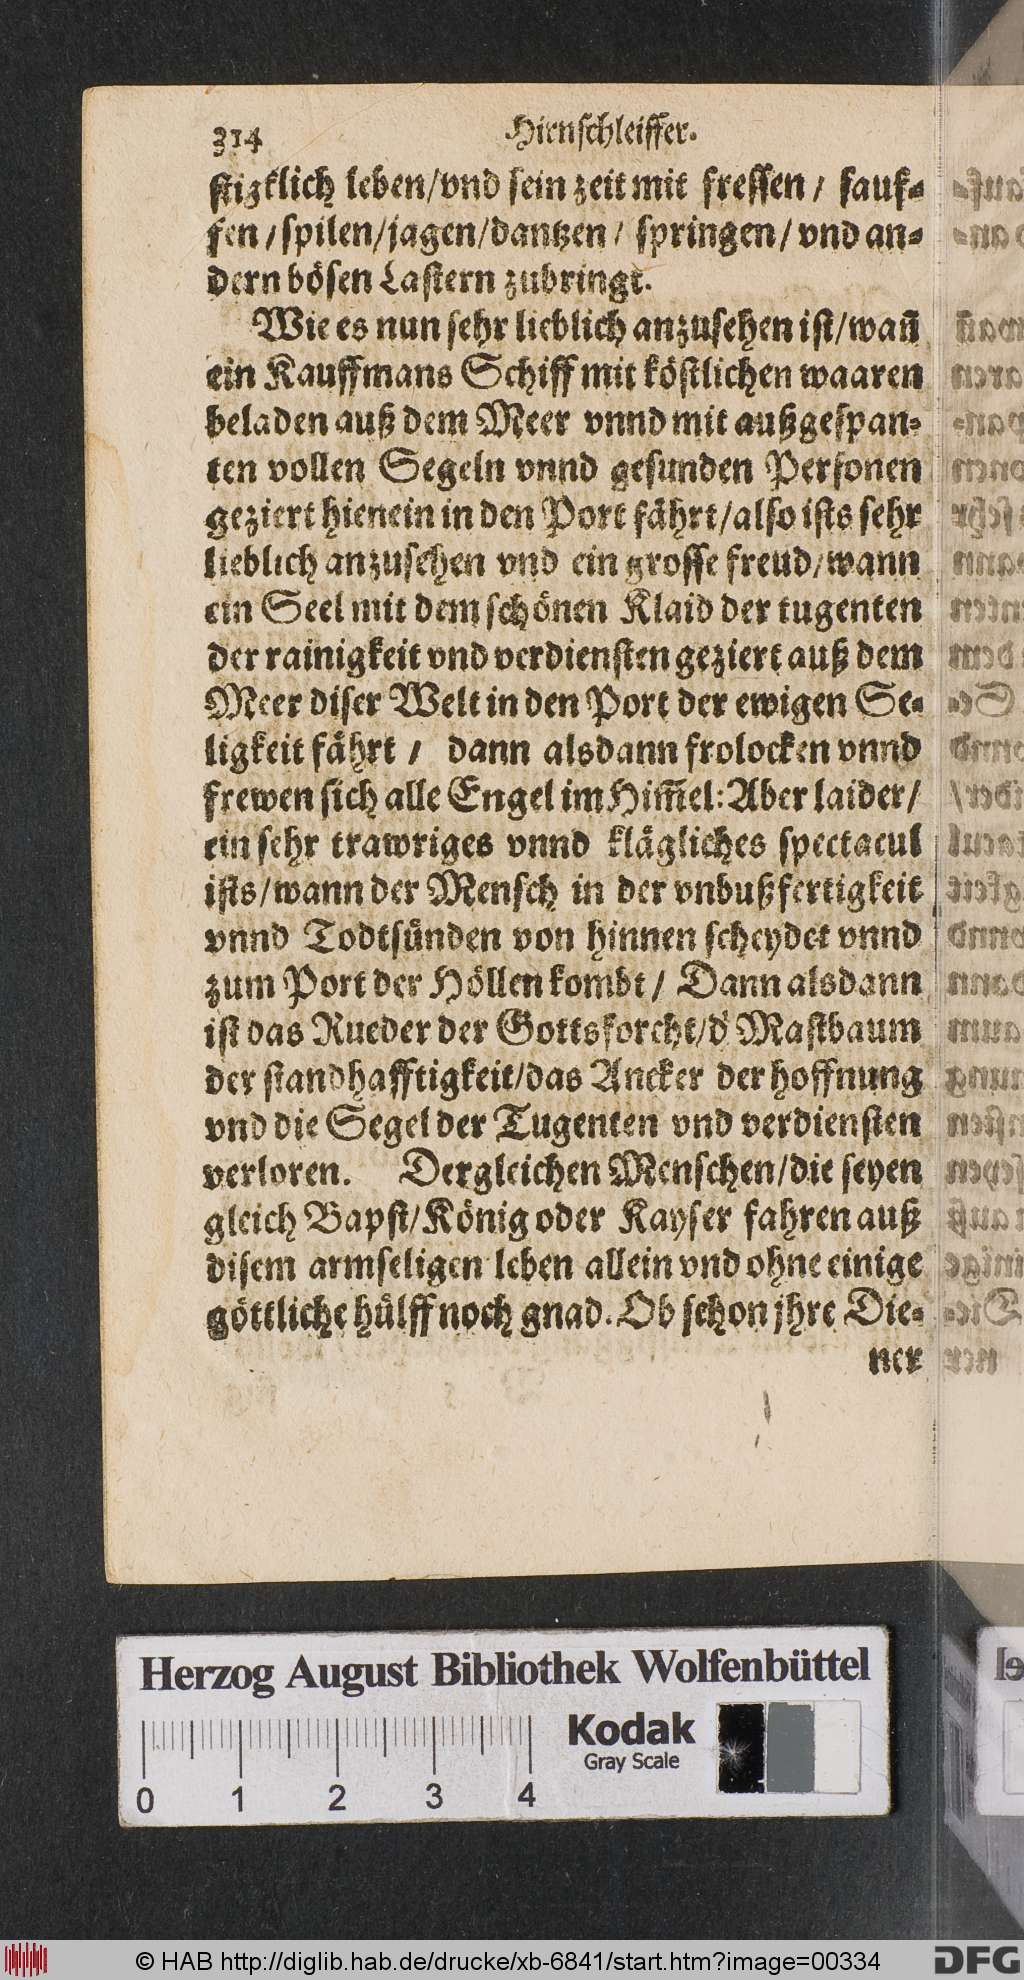 314 Hirnschleiffer.
stizklich leben/vnd sein zeit mit fressen / sauf⸗
fen / spilen/jagen/dantzen / springen / vnd an⸗
dern bösen Lastern zubringt.
Wie es nun sehr lieblich anzusehen ist/wañ
ein Kauffmans Schiff mit köstlichen waaren
beladen auß dem Meer vnnd mit außgespan⸗
ten vollen Segeln vnnd gesunden Personen
geziert hienein in den Port fährt/also ists sehr
lieblich anzusehen vnd ein grosse freud/wann
ein Seel mit dem schönen Klaid der tugenten
der rainigkeit vnd verdiensten geziert auß dem
Meer diser Welt in den Port der ewigen Se⸗
ligkeit fährt / dann alsdann frolocken vnnd
frewen sich alle Engel im Him̃el: Aber laider/
ein sehr trawriges vnnd klägliches spectacul
ists/wann der Mensch in der vnbußfertigkeit
vnnd Todtsünden von hinnen scheydet vnnd
zum Port der Höllen kombt / Dann alsdann
ist das Rueder der Gottsforcht/d' Mastbaum
der standhafftigkeit/das Ancker der hoffnung
vnd die Segel der Tugenten vnd verdiensten
verloren. Dergleichen Menschen/die seyen
gleich Bapst/König oder Kayser fahren auß
disem armseligen leben allein vnd ohne einige
göttliche hülff noch gnad. Ob schon jhre Die⸗
ner
Herzog August Bibliothek Wolfenbüttel
Kodak
Gray Scale
0 1 2 3 4
© HAB http://diglib.hab.de/drucke/xb-6841/start.htm?image=00334
DFG